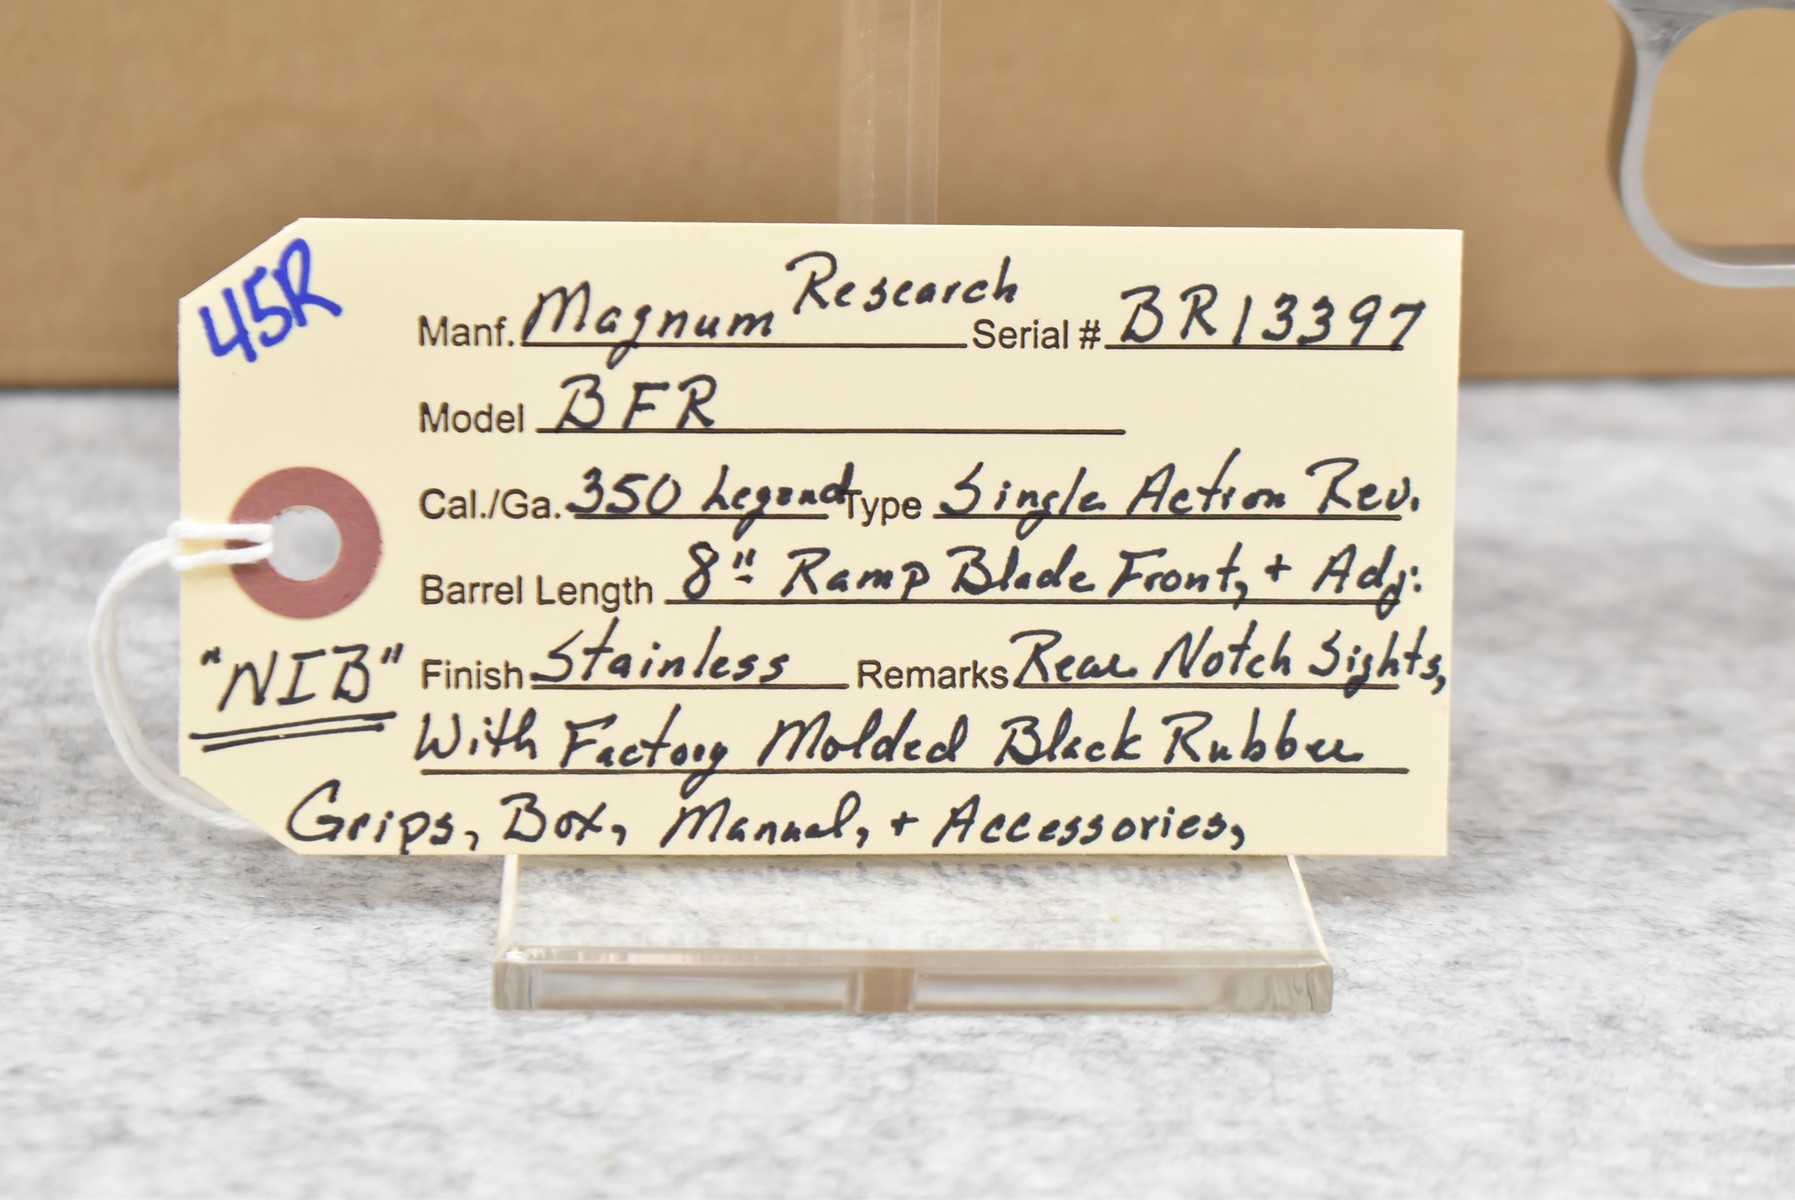 45R
Manf. Magnum Research Serial # BR13397
Model BFR
Cal./Ga. 350 Legend Type Single Action Rev.
Barrel Length 8" Ramp Blade Front, + Adj:
"NIB" Finish Stainless Remarks Rear Notch Sights,
With Factory Molded Black Rubber
Grips, Box, Manual, + Accessories,